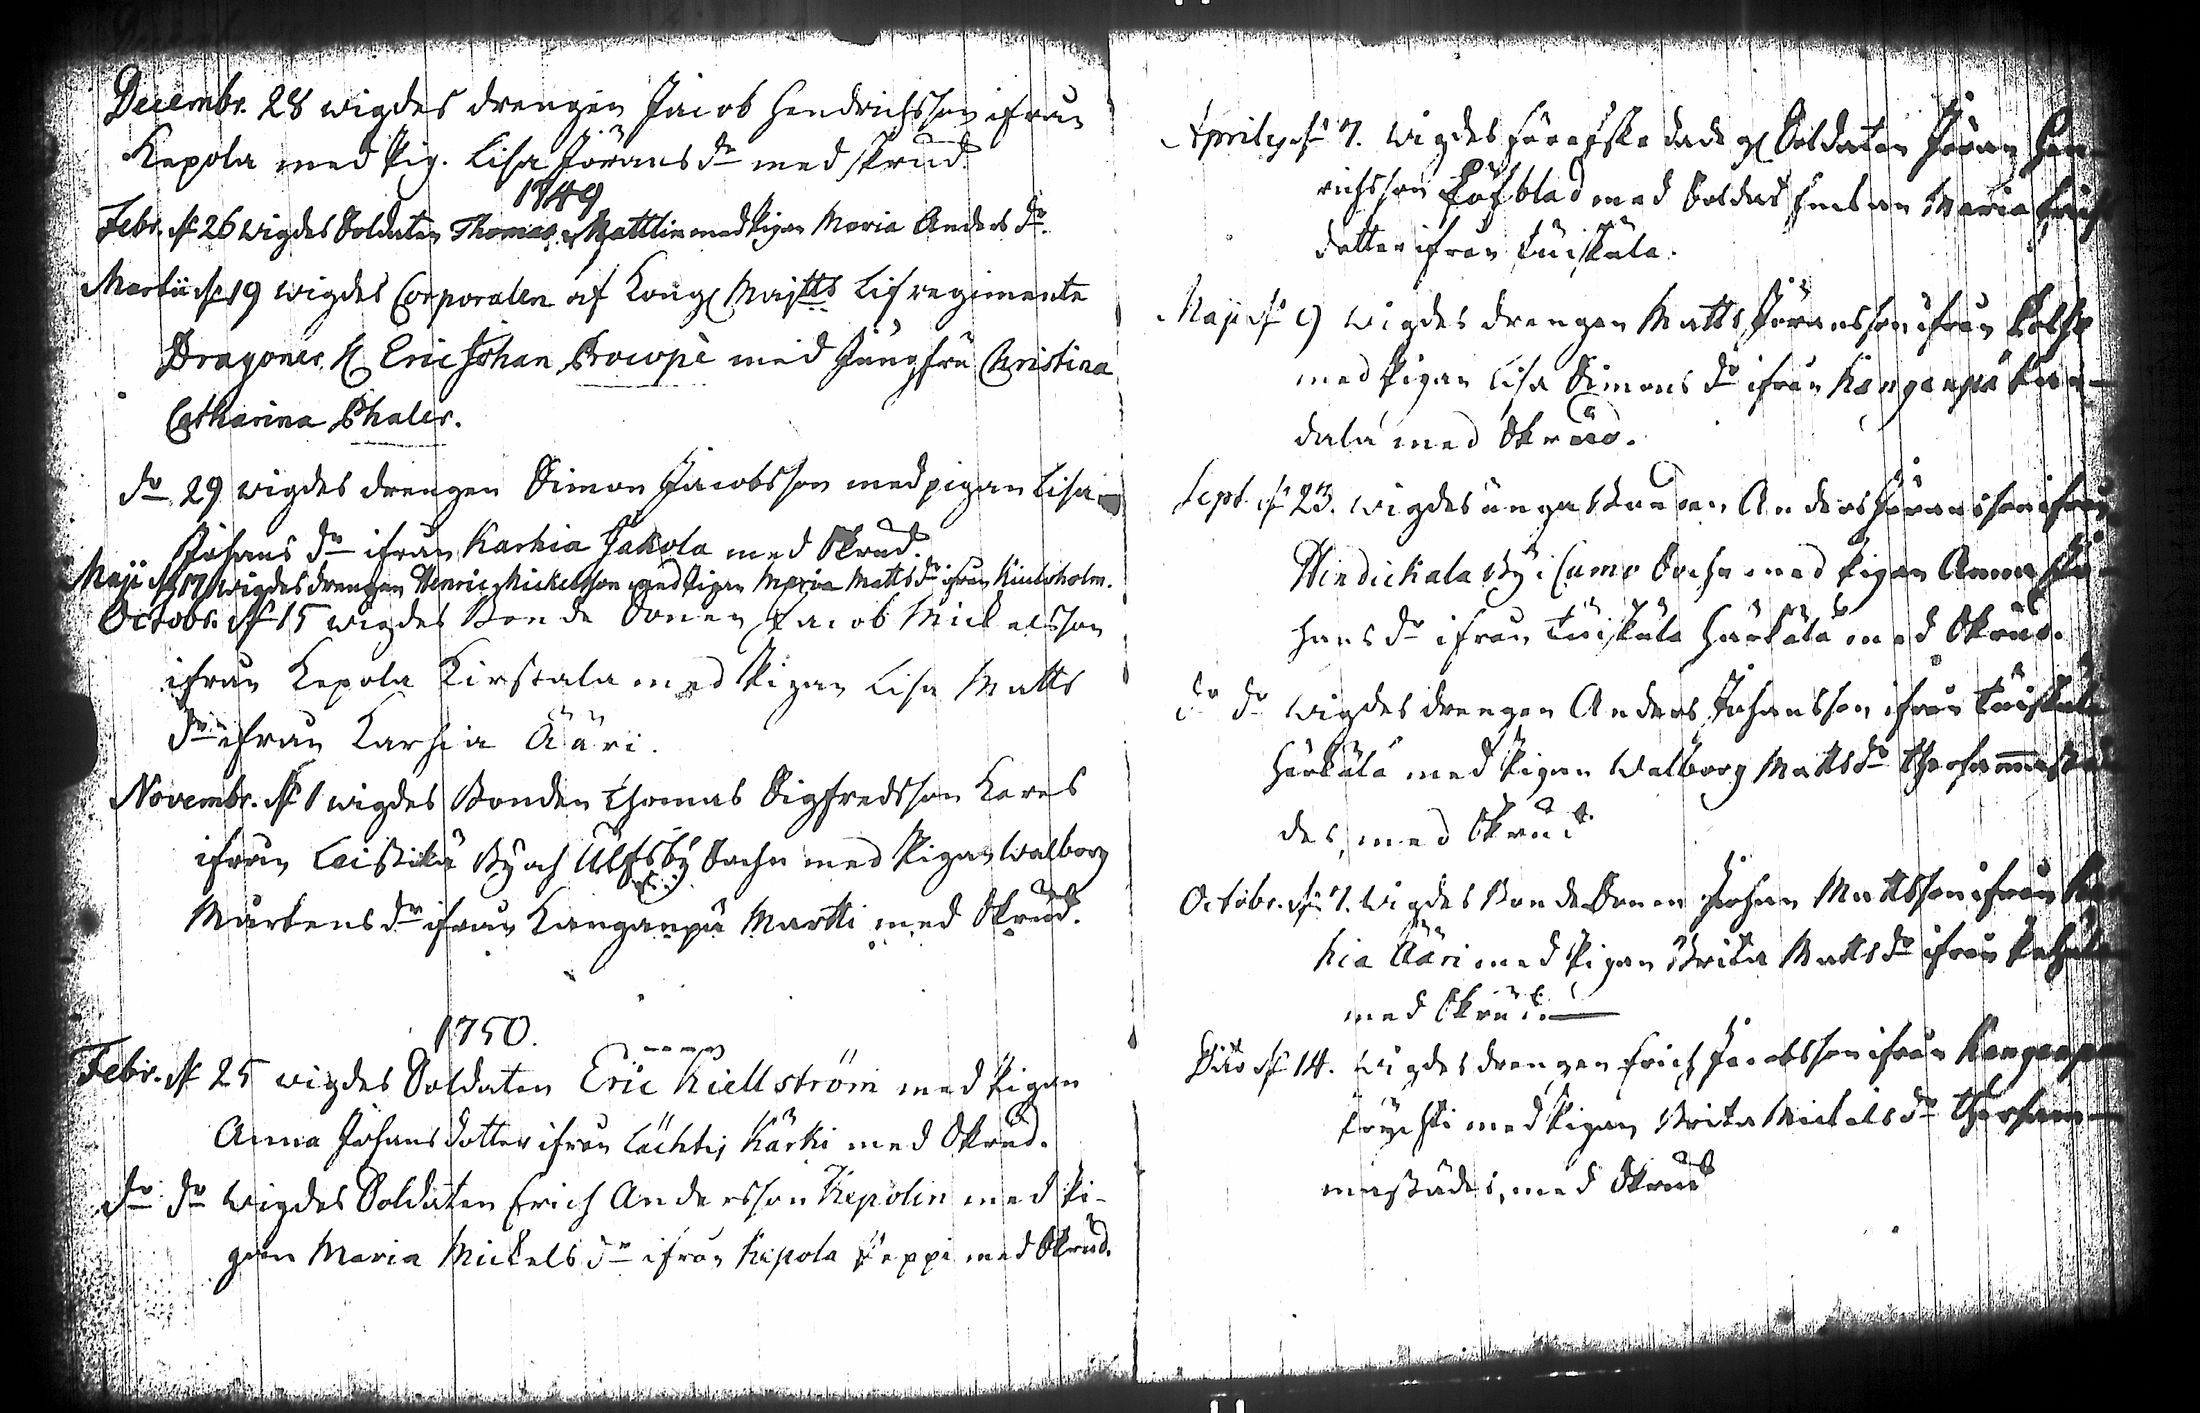 Decembr. 28 wigdes drengen Jacob Hendrichsson ifrån
Kepola med Pig. Lisa Jörans dr med skrud.
1749
Febr. d. 26 wigdes Soldaten Thomas Mattlin med Pigan Maria Anders dr.
Martii d. 19 wigdes Corporalen af Kongl Majtts Lifregimente
Dragoner H Eric Johan Procopè med Jungfru Christina
Catharina Phaler.
do 29 wigdes drengen Simon Jacobsson med pigan Lisa
Johans dr ifrån Karhia Jakola med Skrud.
Maji d. 17 wigdes drengen Henric Mickelsson med Pigan Maria Matts dr ifrån Kiuloholm.
Octobr. d. 15 wigdes Bonde Sonen Jacob Mickelsson
ifrån Kepola Kirstala med Pigan Lisa Matts
dr ifrån Karhia Ääri.
Novembr. d. 1 wigdes Bonden Thomas Sigfredsson Kares
ifrån Leistilä By och Ulfsby Sochn med Pigan Walborg
Mårtens dr ifrån Kanganpä Martti med Skrud.
1750.
Febr. d. 25 wigdes Soldaten Eric Kiellström med Pigan
Anna Johans dotter ifrån Lächtis Kärki med Skrud.
do do wigdes Soldaten Erich Andersson Kepolin med Pi-
gan Maria Mickels dr ifrån Kepola Peppi med Skrud.
Aprilis d. 7. wigdes förafskedade gl Soldaten Jöran Hen-
richsson Löfblad med Soldat Enkan Maria Erichs
dotter ifrån Tuiskula.
Maji d. 9 wigdes drengen Matts Jöransson ifrån
med Pigan Lisa Simons dr ifrån Kanganpä
dala med Skrud.
Sept. d. 23. wigdes unga Bonden Anders Jöransson ifrån
Hindickala By i Cumo Sochn med Pigan Anna Jo-
hans dr ifrån Tuiskula Härkälä med Skrud.
do do wigdes drengen Anders Johansson ifrån Tuiskula
Härkälä med Pigan Walborg Matts dr therfammastä-
des, med Skrud.
Octobr. d. 7. wigdes Bonde Sonen Johan Mattsson ifrån Kar-
hia Ääri med Pigan Brita Matts dr ifrån
med Skrud.
Dito d. 14. wigdes drengen Erich Jacobsson ifrån Kanganpä
med Pigan Brita Mickels dr thersam-
mastädes, med Skrud